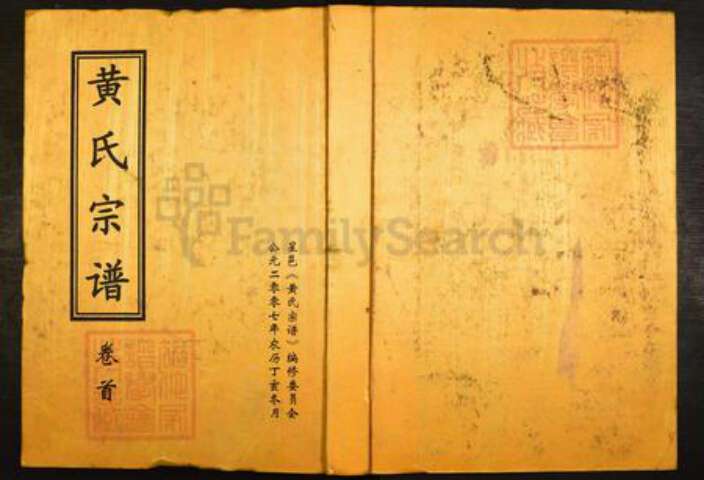 黄氏宗谱
卷首
星邑《黄氏宗谱》编修委员会
公元二零零七年农历丁亥冬月
FamilySearch